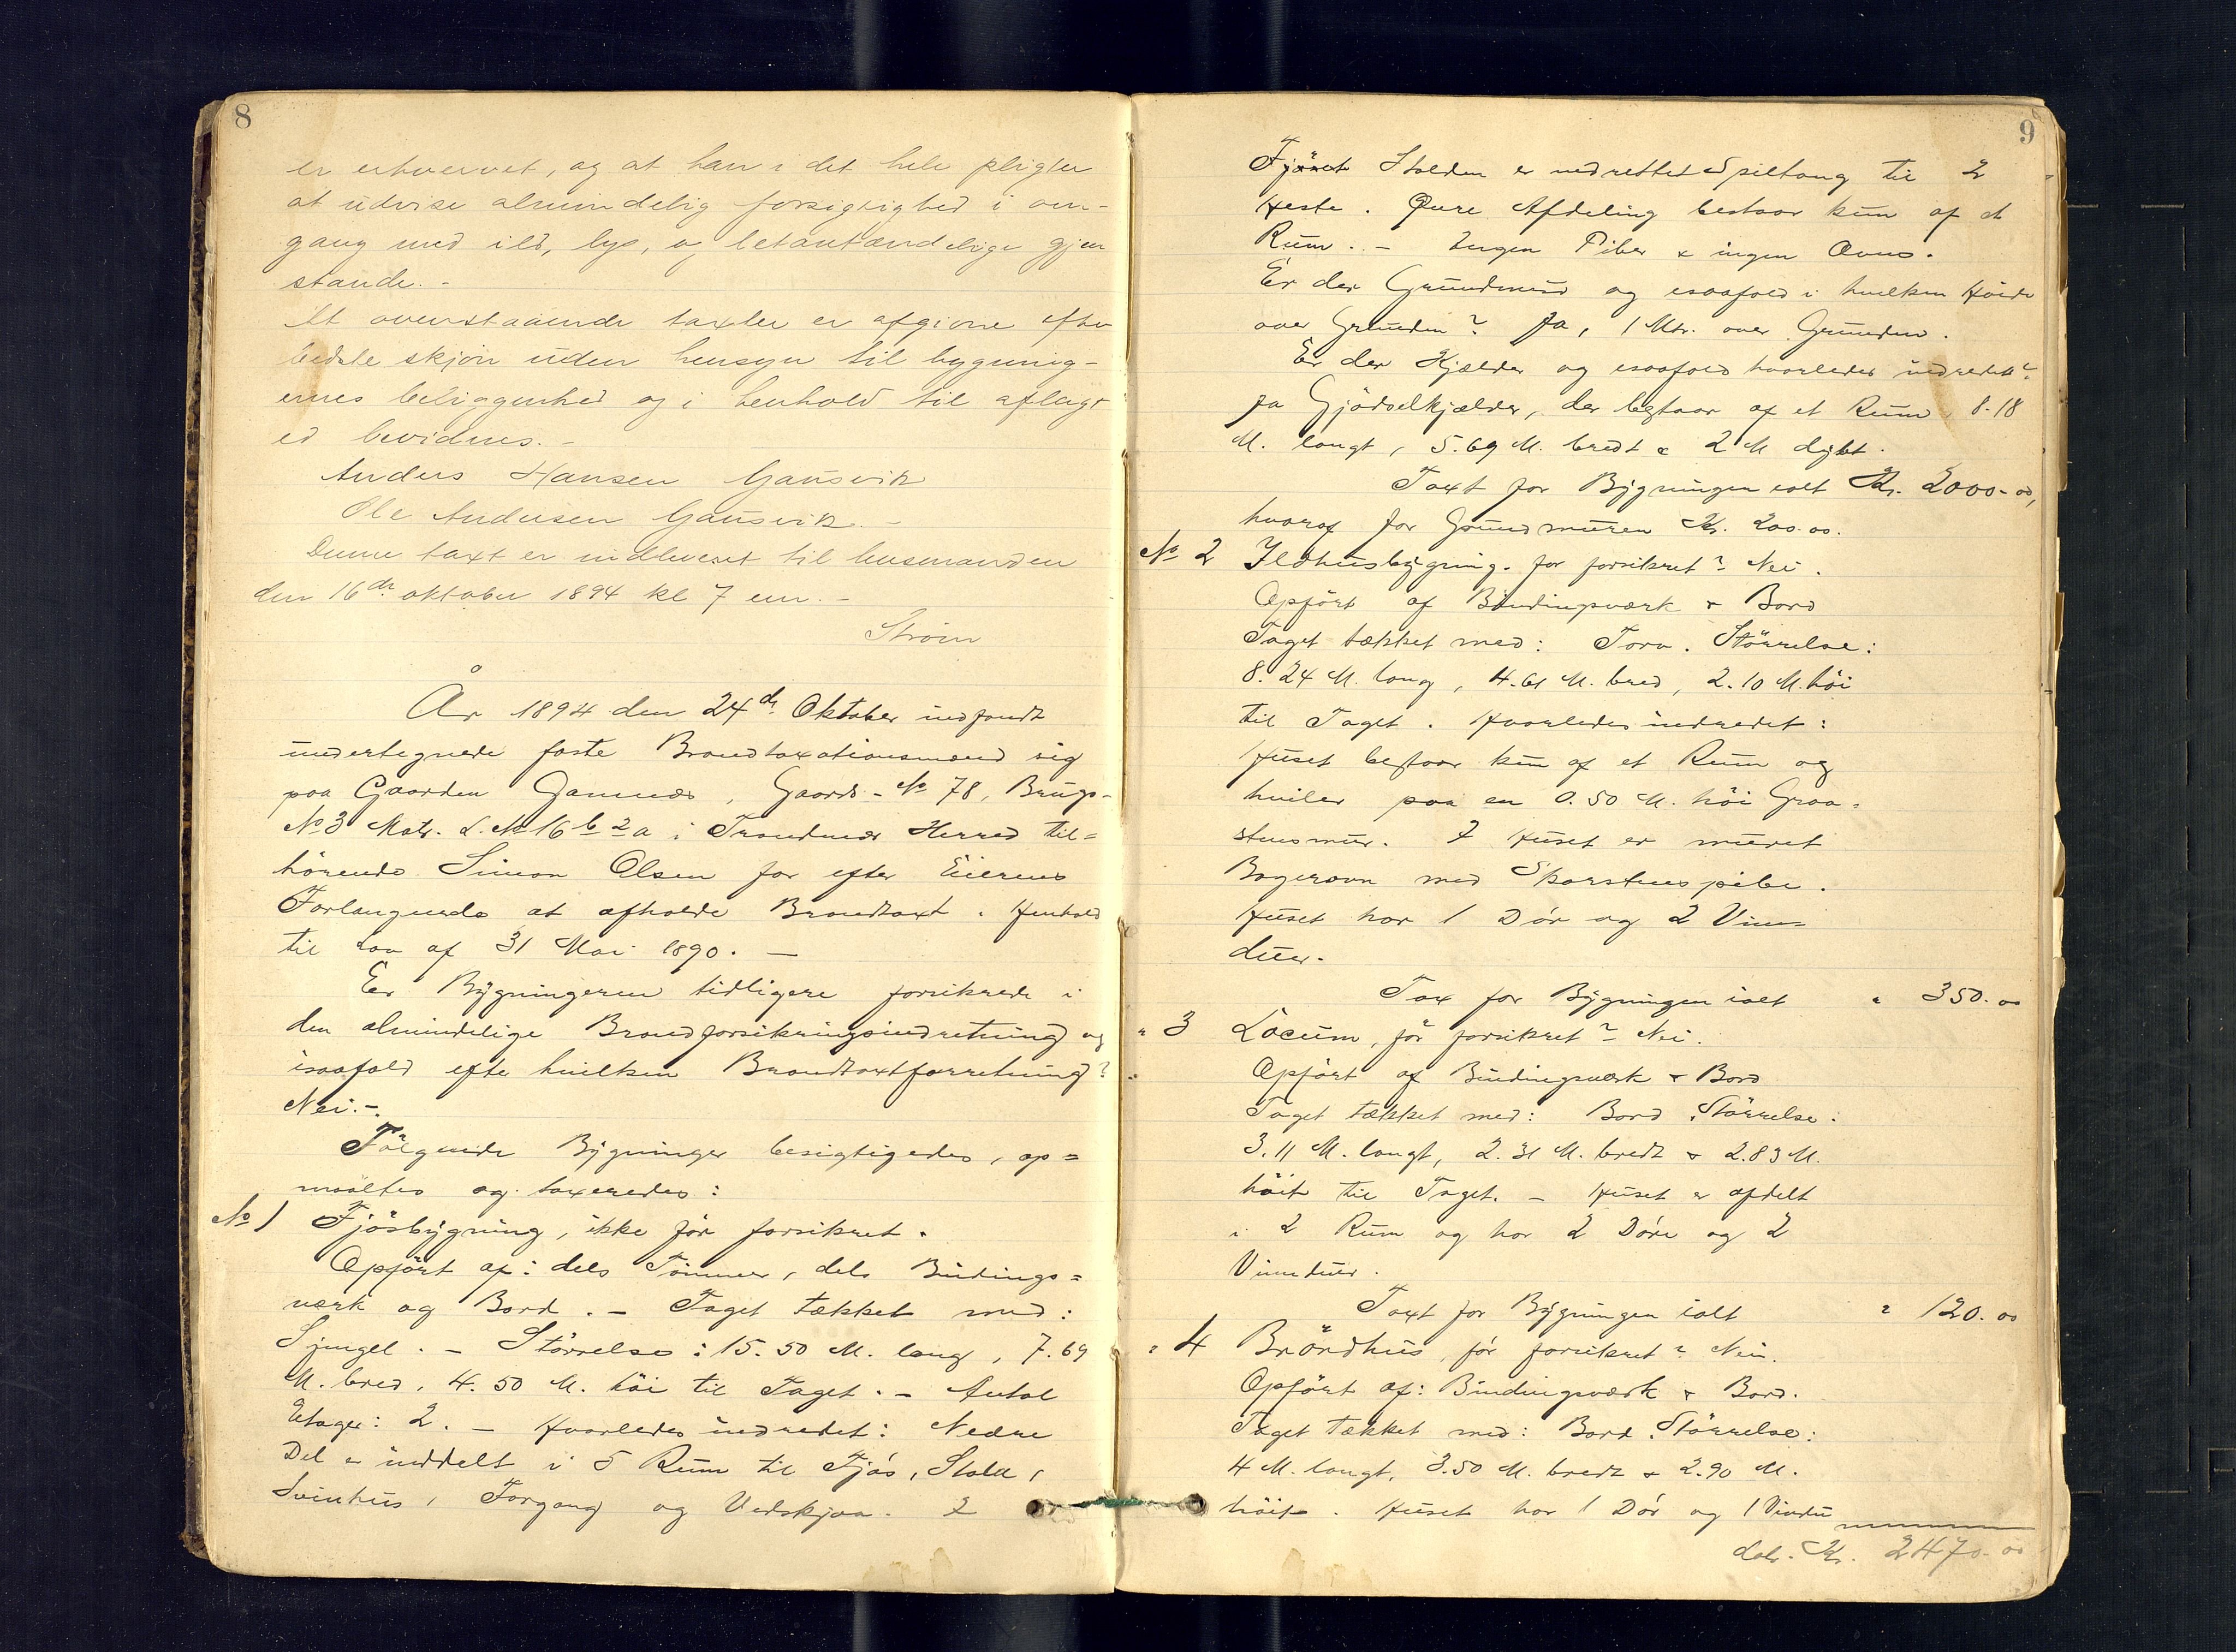 8
er erhvervet, og at han i det hele pligter
at udvise almindelig forsigtighed i om-
gang med ild, lys, og letantændelige gjen
stande. -
At ovenstaaende taxter er afgivne efter
bedste skjøn uden hensyn til bygning-
ernes beliggenhed og i henhold til aflagt
ed bevidnes. -
Anders Hansen Gausvik
Ole Andersen Gausvik. -
Denne taxt er indleveret til lensmanden
den 16de oktober 1894 kl 7 em. -
Strøm
År 1894 den 24de Oktober indfandt
undertegnede faste Brandtaxationsmænd sig
paa Gaarden, Gaards-No 78, Brugs-
No 3 Matr. L. No 16 b 2 a i Trondenæs Herred til=
hörende Simon Olsen for efter Eierens
Forlangende at afholde Brandtaxt i Henhold
til Lov af 31 Mai 1890. —
Er Bygningerne tidligere forsikrede i
den almindelige Brandforsikringsindretning og
isaafald efter hvilken Brandtaxtforretning?
Nei. -
Fölgende Bygninger besigtigedes, op=
maaltes og taxeredes:
No 1 Fjösbygning, ikke för forsikret.
Opfört af: dels Tömmer, dels Bindings=
værk og Bord. - Taget tækket med:
Spingel. - Störrelse: 15.50 M. lang, 7.69
M. bred, 4.50 M. höi til Taget. - Antal
Etager: 2. - Hvorledes indredet: Nedre
Del er inddelt i 5 Rum til Fjös, Stald,
Svinhus, Forgang og Vedskjaa. I
9
Fjöset Stalden er indrettet Spiltaug til 2
Heste. Övre Afdeling bestaar kun af et
Rum. - Ingen Piber & ingen Ovns.
Er der Grundmur og isaafald i hvilken Höide
over Grunden? Ja, 1 Mtr. over Grunden.
Er der Kjælder og isaafald hvorledes indredet?
Ja Gjödselkjælder, der bestaar af et Rum 8.18
M. langt, 5.69 M. bredt & 2 M dybt.
Taxt for Bygningen ialt Kr. 2000.00,
hvoraf for Grundmuren Kr. 200.00.
No 2 Ildhusbygning. för forsikret? Nei.
Opfört af Bindingsværk & Bord
Taget tækket med: Torv. Störrelse:
8.24 M. lang, 4.61 M. bred, 2.10 M. höi
til Taget. Hvorledes indredet:
Huset bestaar kun af et Rum og
hviler paa en 0.50 M. höi Graa=
stensmur. I Huset er muret
Bagerovn med Skorstenspibe.
Huset har 1 Dör og 2 Vin=
duer.
Tax for Bygningen ialt " 350.00
" 3 Locum, för forsikret? Nei.
Opfört af Bindingsværk & Bord
Taget tækket med: Bord. Störrelse:
3.11 M. langt, 2.31 M. bredt & 2.83 M.
höit til Taget. - Huset er afdelt
i 2 Rum og har 2 Döre og 2
Vinduer.
Taxt for Bygningen ialt " 120.00
" 4 Bröndhus, för forsikret? Nei.
Opfört af: Bindingsværk & Bord.
Taget tækket med: Bord. Störrelse:
4 M. langt, 3.50 M. bredt & 2.90 M.
höit. Huset har 1 Dör og 1 Vindu
Kr. 2470.00